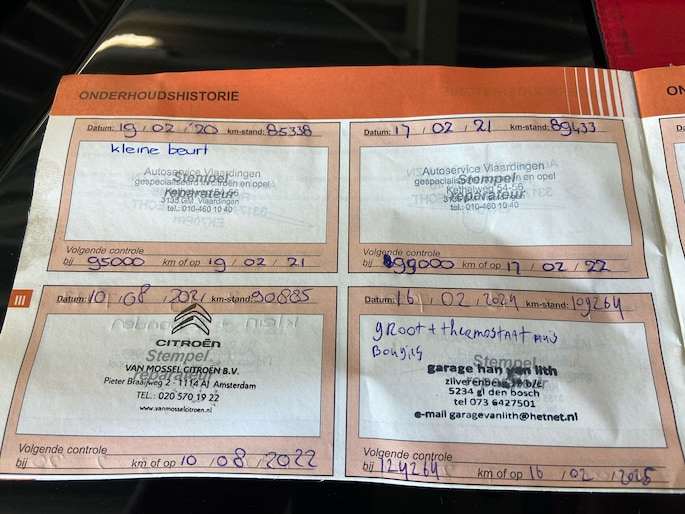 ONDERHOUDSHISTORIE
ON
Datum: 19 / 02 / '20 km-stand: 85338
kleine beurt
Autoservice Vlaardingen
gespecialiseerd in citroën en opel
Stempel
Kethelweg 54-56
reparateur
3135 GM Vlaardingen
tel.: 010-460 10 40
Volgende controle
bij 95000 km of op 19 / 02 / 21
Datum: 17 / 02 / 21 km-stand: 89433
Autoservice Vlaardingen
gespecialiseerd in citroën en opel
Stempel
Kethelweg 54-56
reparateur
3135 GM Vlaardingen
tel.: 010-460 10 40
Volgende controle
bij 99000 km of op 17 / 02 / 22
III
Datum: 10 / 08 / 2021 km-stand: 90885
CITROËN
Stempel
VAN MOSSEL CITROËN B.V.
reparateur
Pieter Braaijweg 2 - 1114 AJ Amsterdam
TEL.: 020 570 19 22
www.vanmosselcitroen.nl
Volgende controle
bij km of op 10 / 08 / 2022
Datum: 16 / 02 / 2024 km-stand: 109264
gROOT + thermostaat Huis
Bougies
Stempel
garage han van lith
reparateur
5234 gl den bosch
tel 073 6427501
e-mail garagevanlith@hetnet.nl
Volgende controle
bij 124264 km of op 16 / 02 / 2025